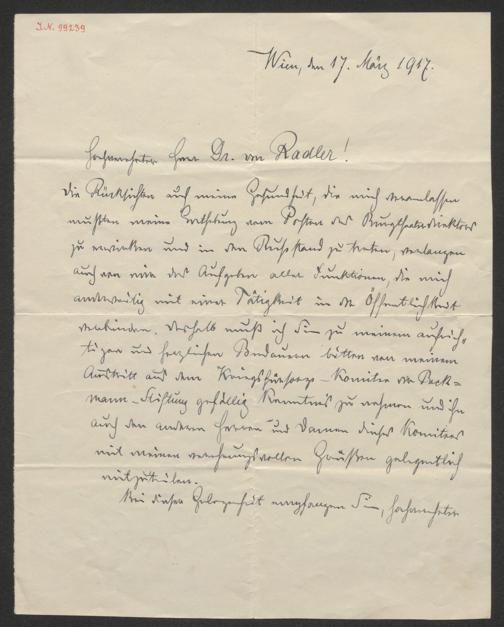 J.N. 99239
Wien, den 17. März 1917.
Hochverehrter Herr Dr. von Radler!
Die Rücksichten auf meine Gesundheit, die mich veranlassen
mußten meine Enthebung vom Posten des Burgtheaterdirektors
zu erwirken und in den Ruhestand zu treten, verlangen
auch von mir das Aufgeben aller Funktionen, die mich
anderweitig mit einer Tätigkeit in der Öffentlichkeit
verbinden. Deshalb muß ich Sie zu meinem aufrich-
tigen und herzlichen Bedauern bitten von meinem
Austritt aus dem Kriegsfürsorge-Komitee der Beck-
mann-Stiftung gefällig Kenntnis zu nehmen und ihn
auch den anderen Herren und Damen dieses Komitees
mit meinen verehrungsvollen Grüßen gelegentlich
mitzuteilen.
Bei dieser Gelegenheit empfangen Sie, hochverehrter